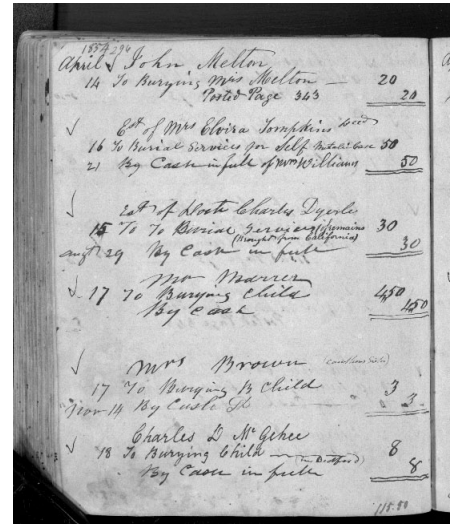 1854 296
April John Melton
14 To Burying Mrs Melton — 20
Posted Page 343 20
Est of Mrs Elvira Tompkins decd
16 To Burial Services for Self Metalic Case 50
21 By Cash in full of Wm Williams 50
Est of Doctr Charles Dyerle
15 To To Burial Services (remains 30
(brought from California)
Augt 29 By Cash in full 30
Mr Marrer
17 To Burying Child 4.50
By Cash 4.50
Mrs Brown
17 To Burying B Child 3
Nov 14 By Cash 3
Charles D McGehee
18 To Burying Child — 8
By Cash in full 8
115.50